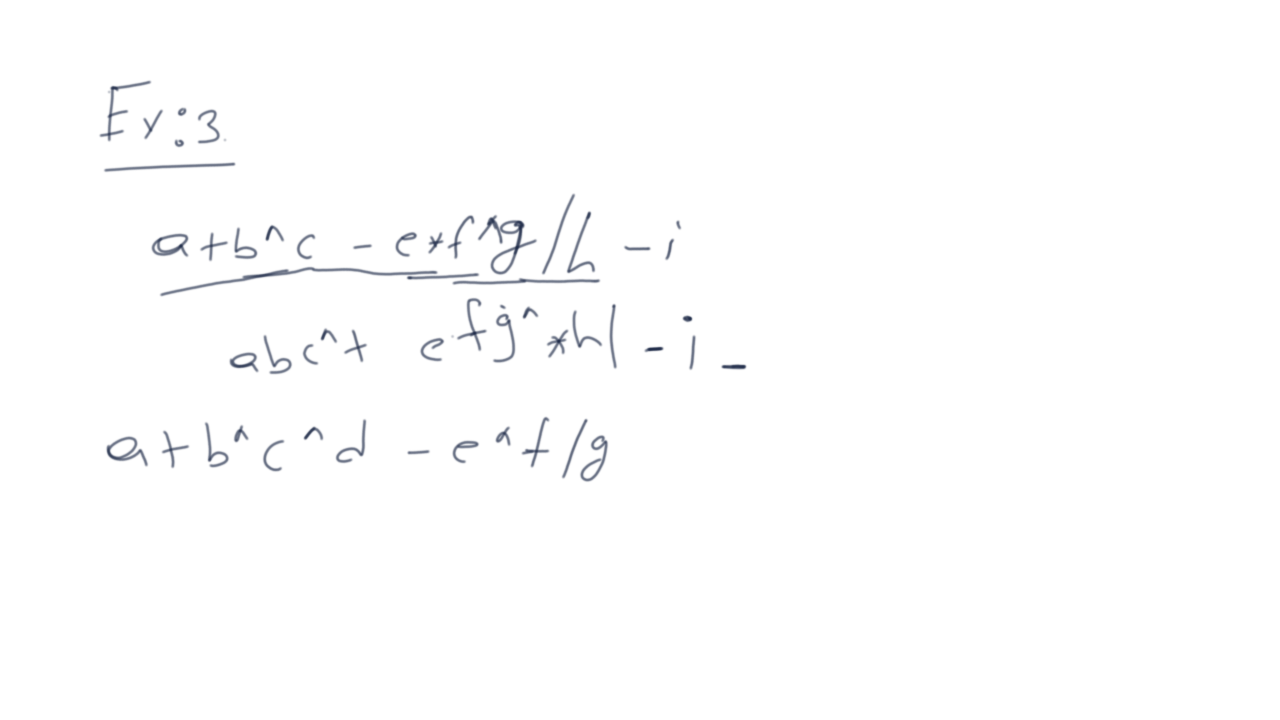 Ex:3
a+b^c - e*f^g/h - i
abc^+ efg^*h/ - i -
a+b^c^d - e*f/g